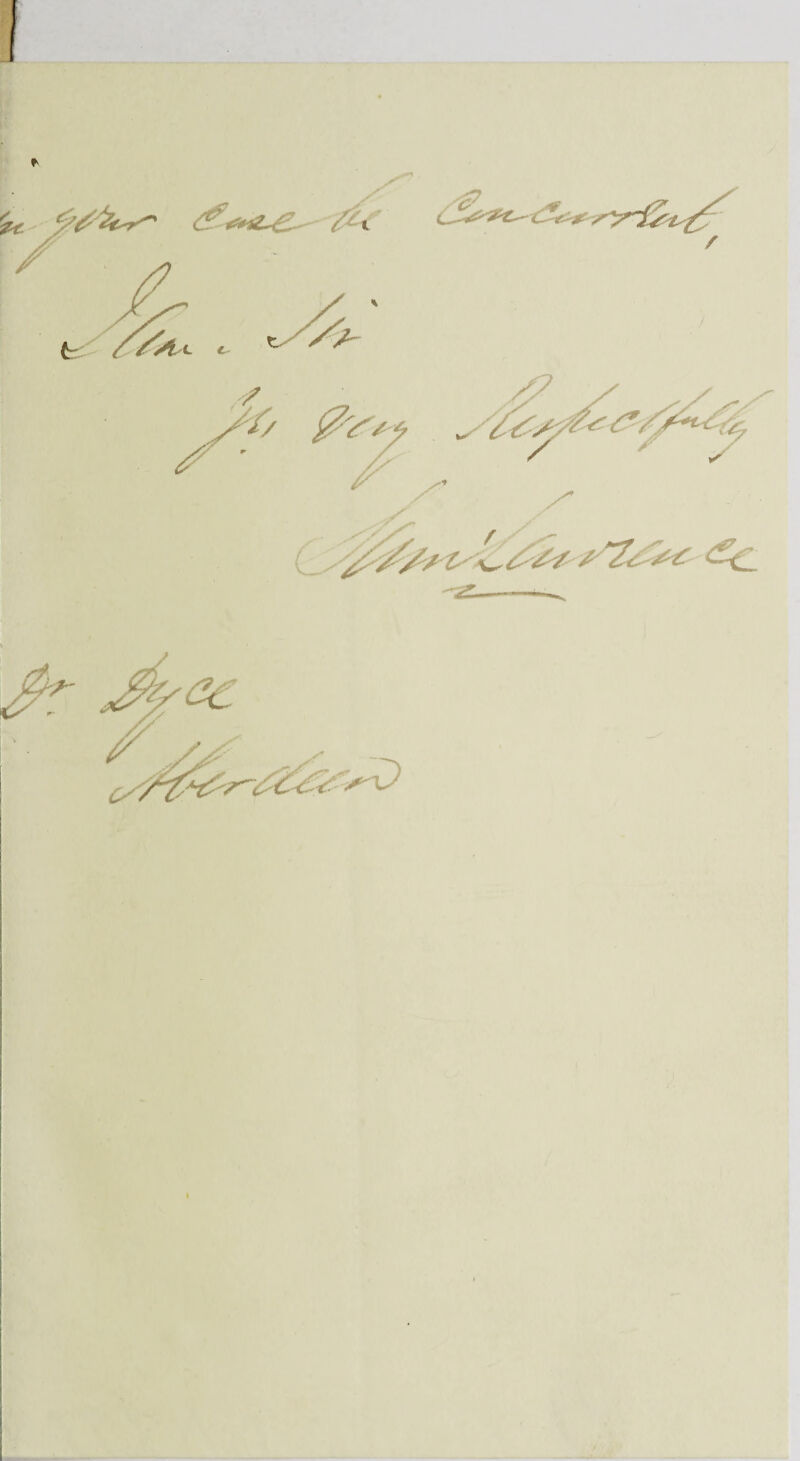 in your case be Concurrent,
I am, Sir
Yrs Very Respectfully
Lawrence
Dr. Dyce
Aberdeen